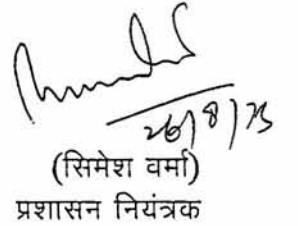 26/8/23
(सिमेश वर्मा)
प्रशासन नियंत्रक